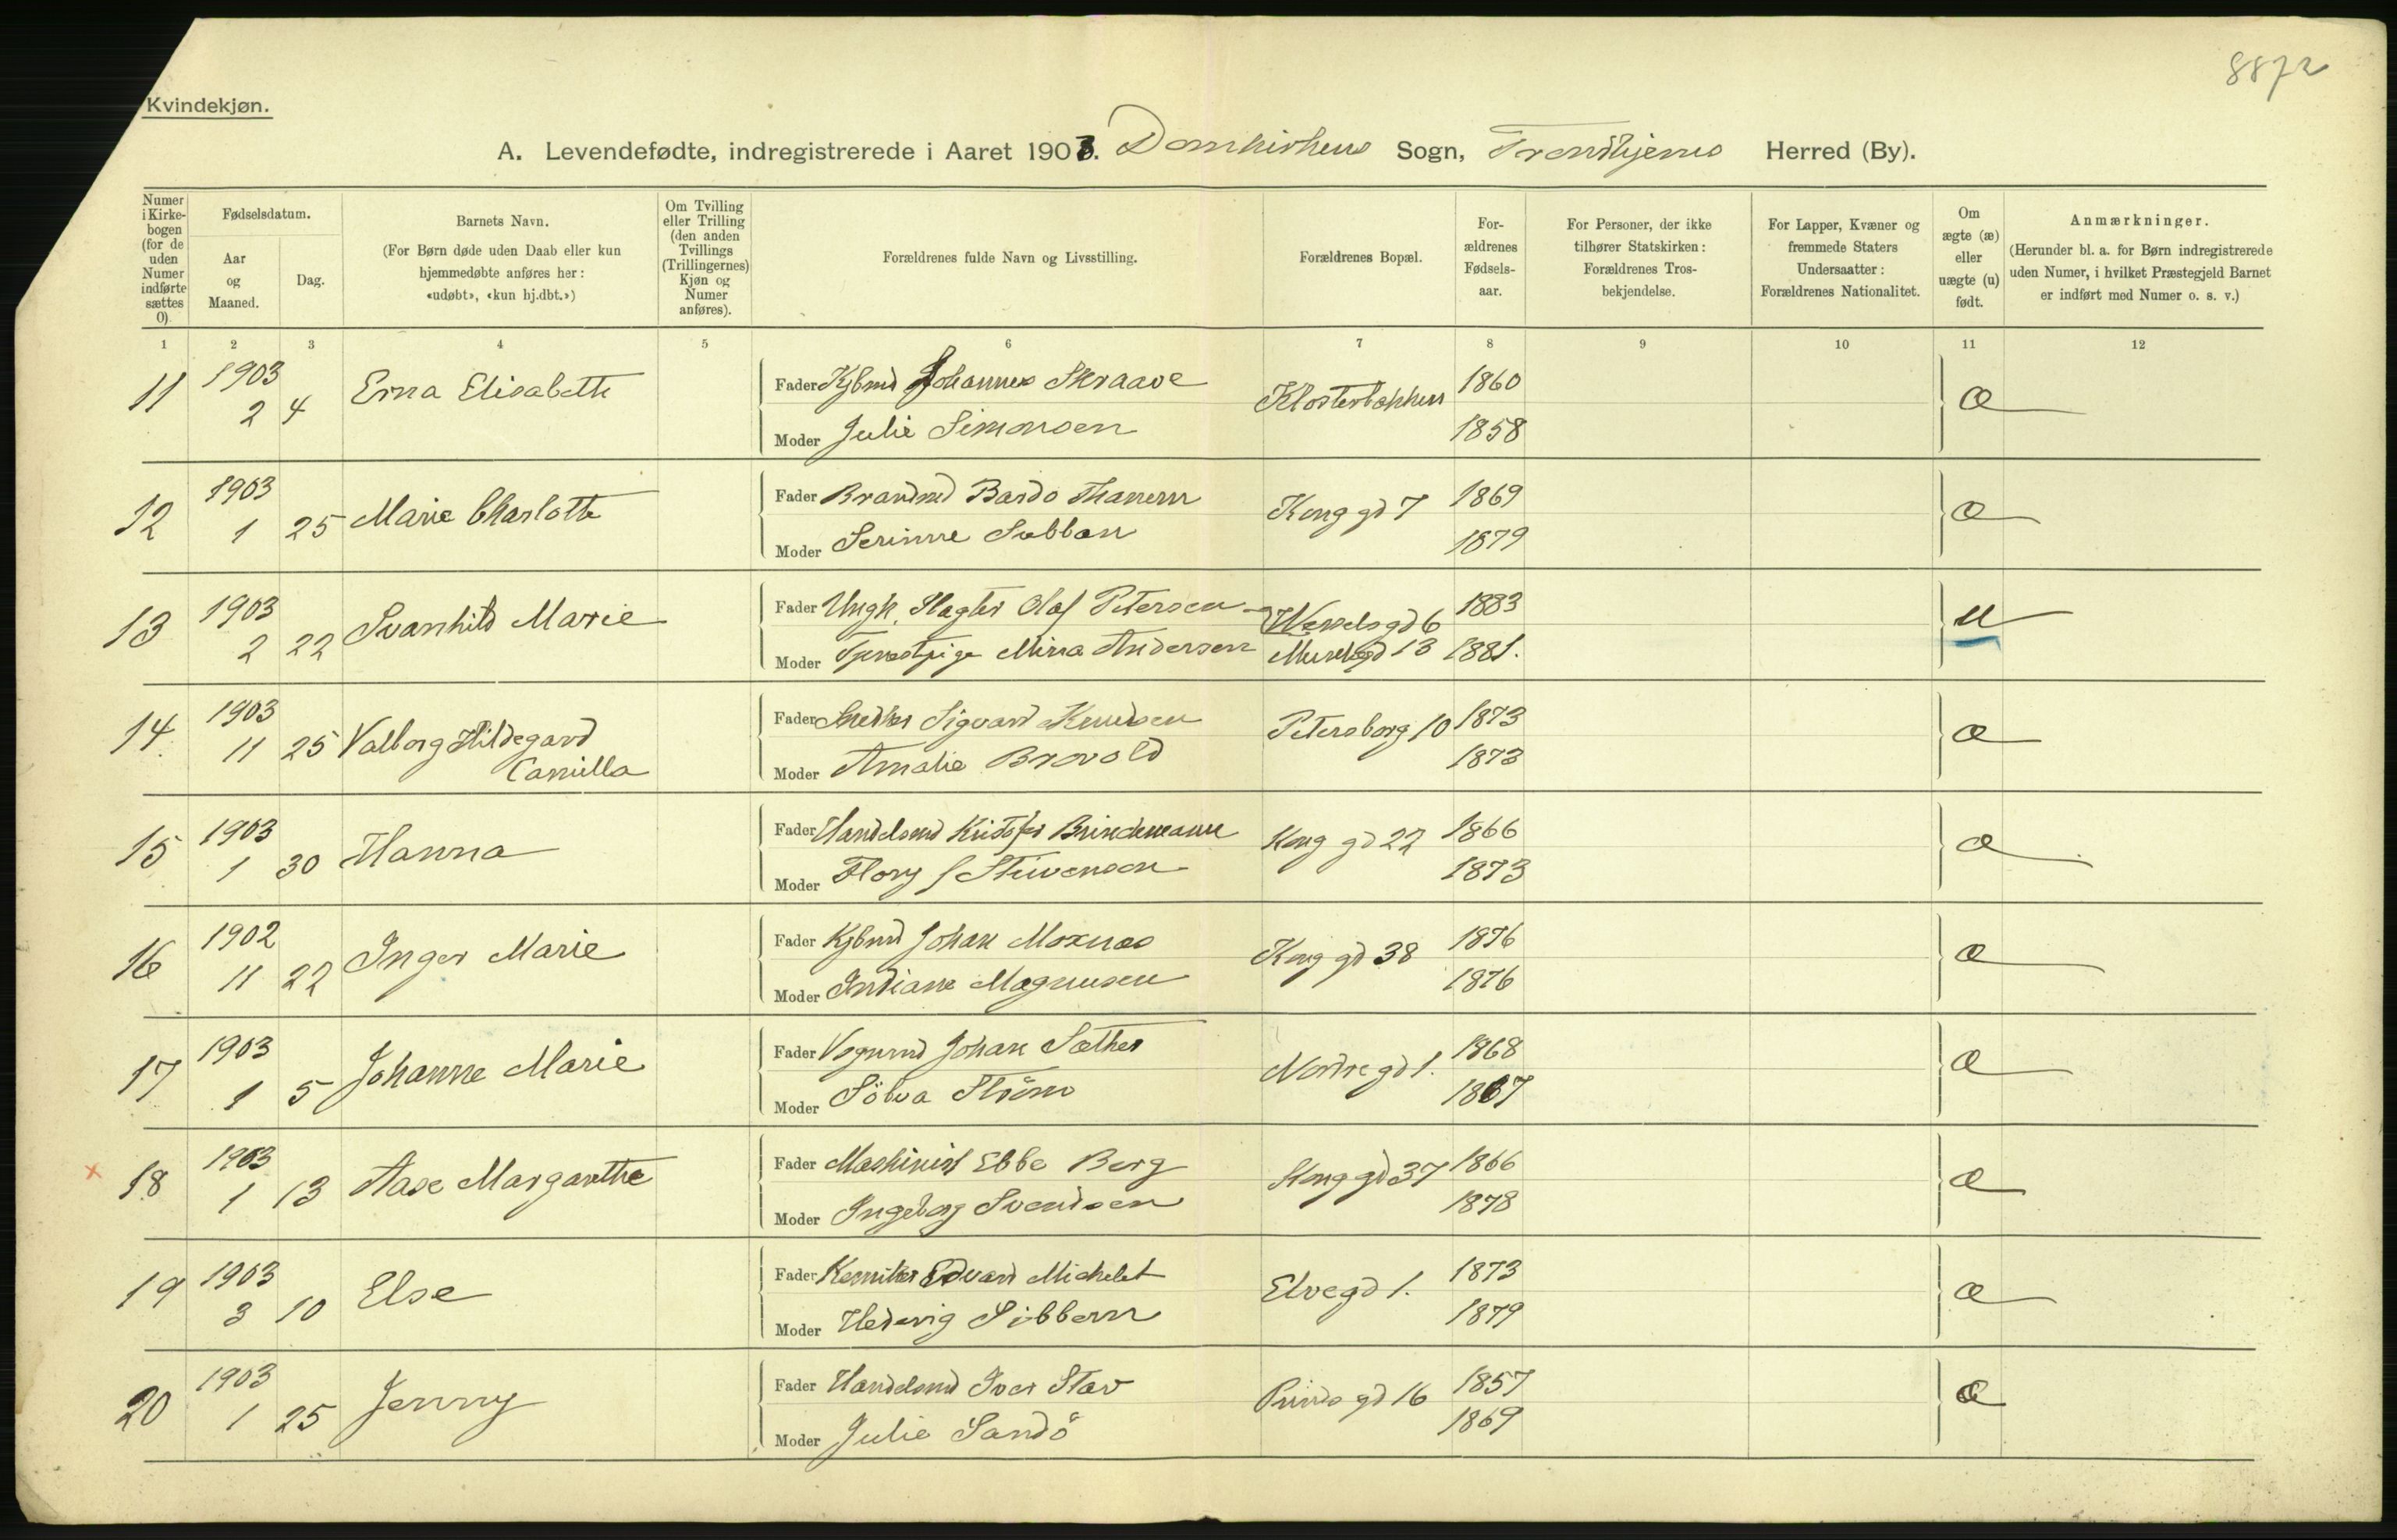 8872
Kvindekjøn.
A. Levendefødte, indregistrerede i Aaret 1903. Domkirkens Sogn, Trondhjems Herred (By).
Numer i Kirkebogen (for de uden Numer indførte sættes 0)
Fødselsdatum.
Aar og Maaned.
Dag.
Barnets Navn.
(For Børn døde uden Daab eller kun hjemmedøbte anføres her: «udøbt», «kun hj.dbt.»)
Om Tvilling eller Trilling (den anden Tvillings (Trillingernes) Kjøn og Numer anføres).
Forældrenes fulde Navn og Livsstilling.
Forældrenes Bopæl.
Forældrenes Fødselsaar.
For Personer, der ikke tilhører Statskirken: Forældrenes Trosbekjendelse.
For Lapper, Kvæner og fremmede Staters Undersaatter: Forældrenes Nationalitet.
Om ægte (æ) eller uægte (u) født.
Anmærkninger.
(Herunder bl. a. for Børn indregistrerede uden Numer, i hvilket Præstegjeld Barnet er indført med Numer o. s. v.)
1 2 3 4 5 6 7 8 9 10 11 12
11 1903 2 4 Erna Elisabeth Fader Kjbmd Johannes Skraave Klosterbakken 1860 æ
Moder Julie Simonsen 1858
12 1903 1 25 Marie Charlotte Fader Brandmd Bardo Thanem Kong gd 7 1869 æ
Moder Serinne Subban 1879
13 1903 2 22 Svanhild Marie Fader Ungk. Slagter Olaf Petersen Wessels gd 6 1883 u
Moder Tjenestpige Mina Andersen Munkegd 13 1881.
14 1903 11 25 Valborg Hildegard Camilla Fader Snedker Sigvard Knudsen Petersborg 10 1873 æ
Moder Amalie Brovold 1873
15 1903 1 30 Hanna Fader Handelsmd Kristofer Brindemann Kong gd 22 1866 æ
Moder Flory f Stuvensen 1873
16 1902 11 22 Inger Marie Fader Kjbmd Johan Moxnæs Kong gd 38 1876 æ
Moder Indiane Magnusen 1876
17 1903 1 5 Johanne Marie Fader Vognmd Johan Sæther Nordre gd 1. 1868 æ
Moder Sölva Ström 1867
18 1903 1 13 Aase Margarethe Fader Maskinist Ebbe Berg Kong gd 37 1866 æ
Moder Ingeborg Svendsen 1878
19 1903 3 10 Else Fader Kemiker Edvard Michelet Elvegd 1. 1873 æ
Moder Hedevig Sibbern 1879
20 1903 1 25 Jenny Fader Handelsmd Iver Stav Prinds gd 16 1857 æ
Moder Julie Sandö 1869